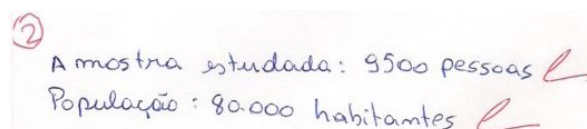 ②
Amostra estudada: 9500 pessoas
População: 80.000 habitantes